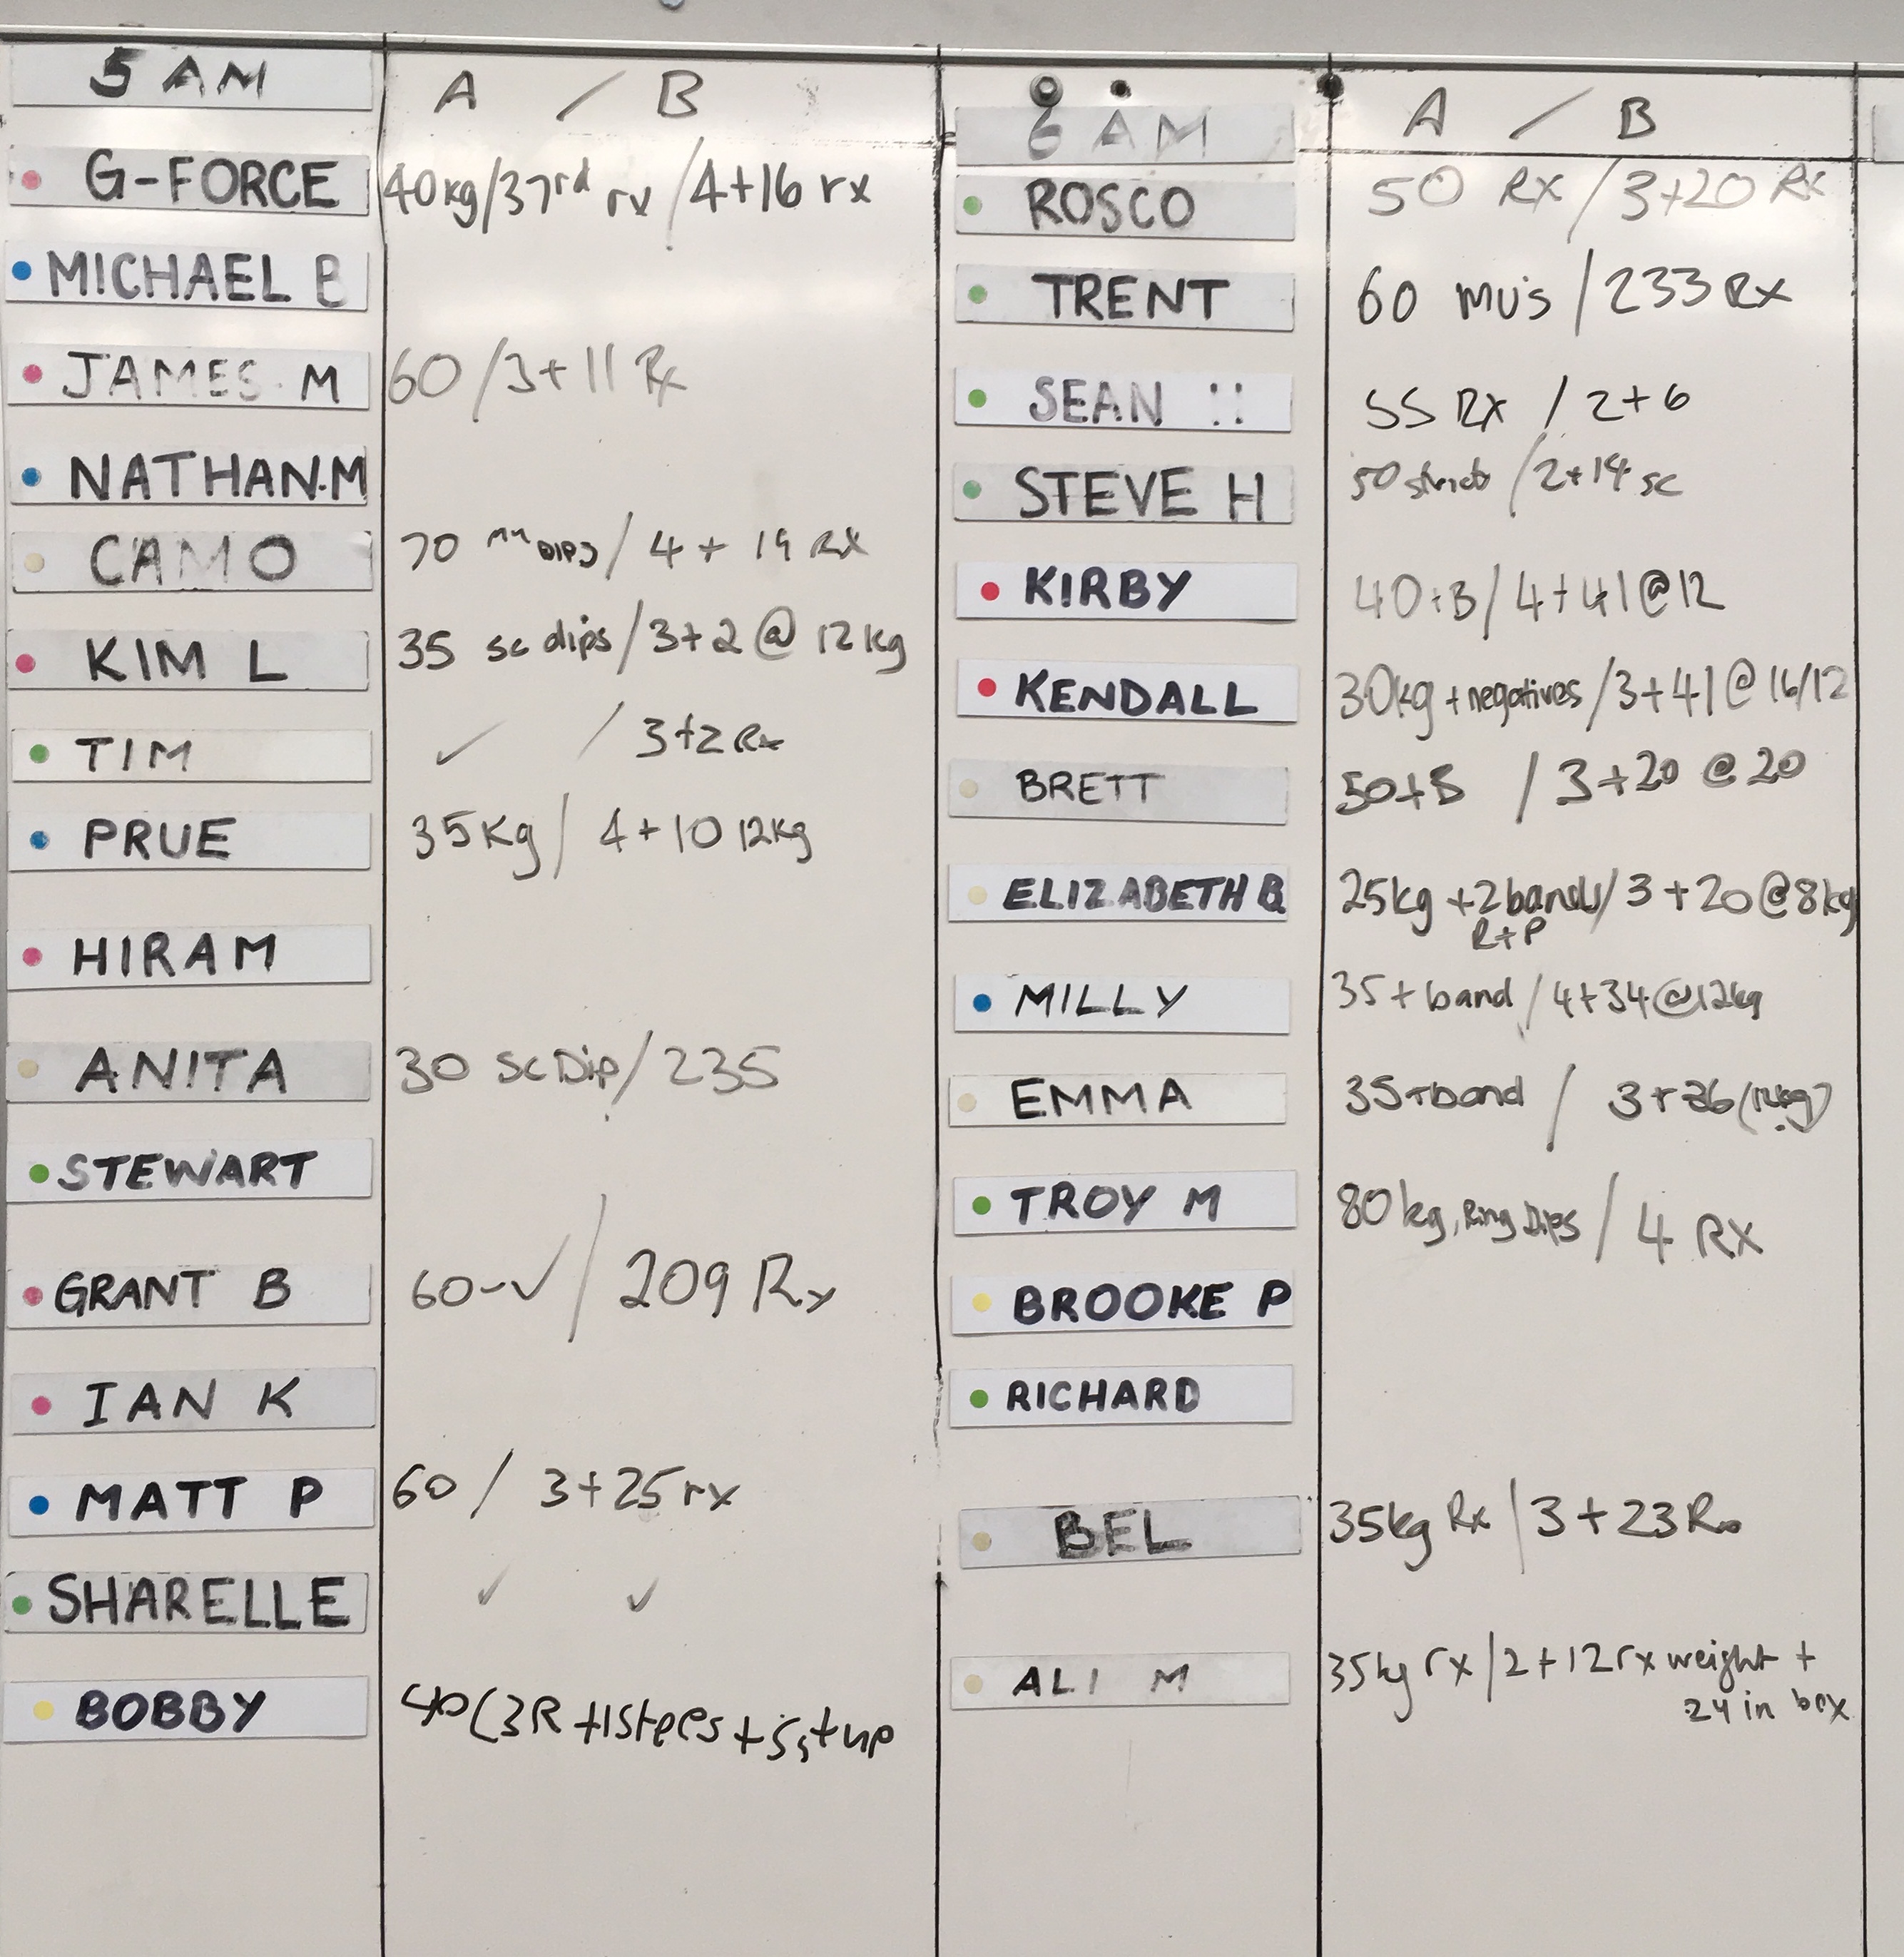 5 AM A / B
G-FORCE 40kg/37rd rx /4+16 rx
MICHAEL B
JAMES M 60 /3+11 Rx
NATHAN.M
CAMO 70 DIPS / 4 + 19 RX
KIM L 35 sc dips/3+2 @ 12kg
TIM ✓ / 3+2 Rx
PRUE 35Kg / 4+10 12kg
HIRAM
ANITA 30 Sc Dip/ 235
STEWART
GRANT B 60-✓ / 209 Rx
IAN K
MATT P 60 / 3+25 rx
SHARELLE ✓ ✓
BOBBY 40(3R +1 +
6 AM A / B
ROSCO 50 RX / 3+20 Rx
TRENT 60 mu's / 233 RX
SEAN 55 RX / 2+6
STEVE H 50 strict /2+14 sc
KIRBY 40+B/ 4+41@12
KENDALL 30kg +negatives /3+41@16/12
BRETT 50+B / 3+20 @ 20
ELIZABETH B 25kg +2bands/ 3+20@8kg
R+P
MILLY 35+band /4+34@12kg
EMMA 35+band / 3+26(12kg)
TROY M 80kg, Ring Dips / 4 RX
BROOKE P
RICHARD
BEL 35kg Rx /3+23 Rx
ALI M 35kg rx /2+12rx weight +
24 in box